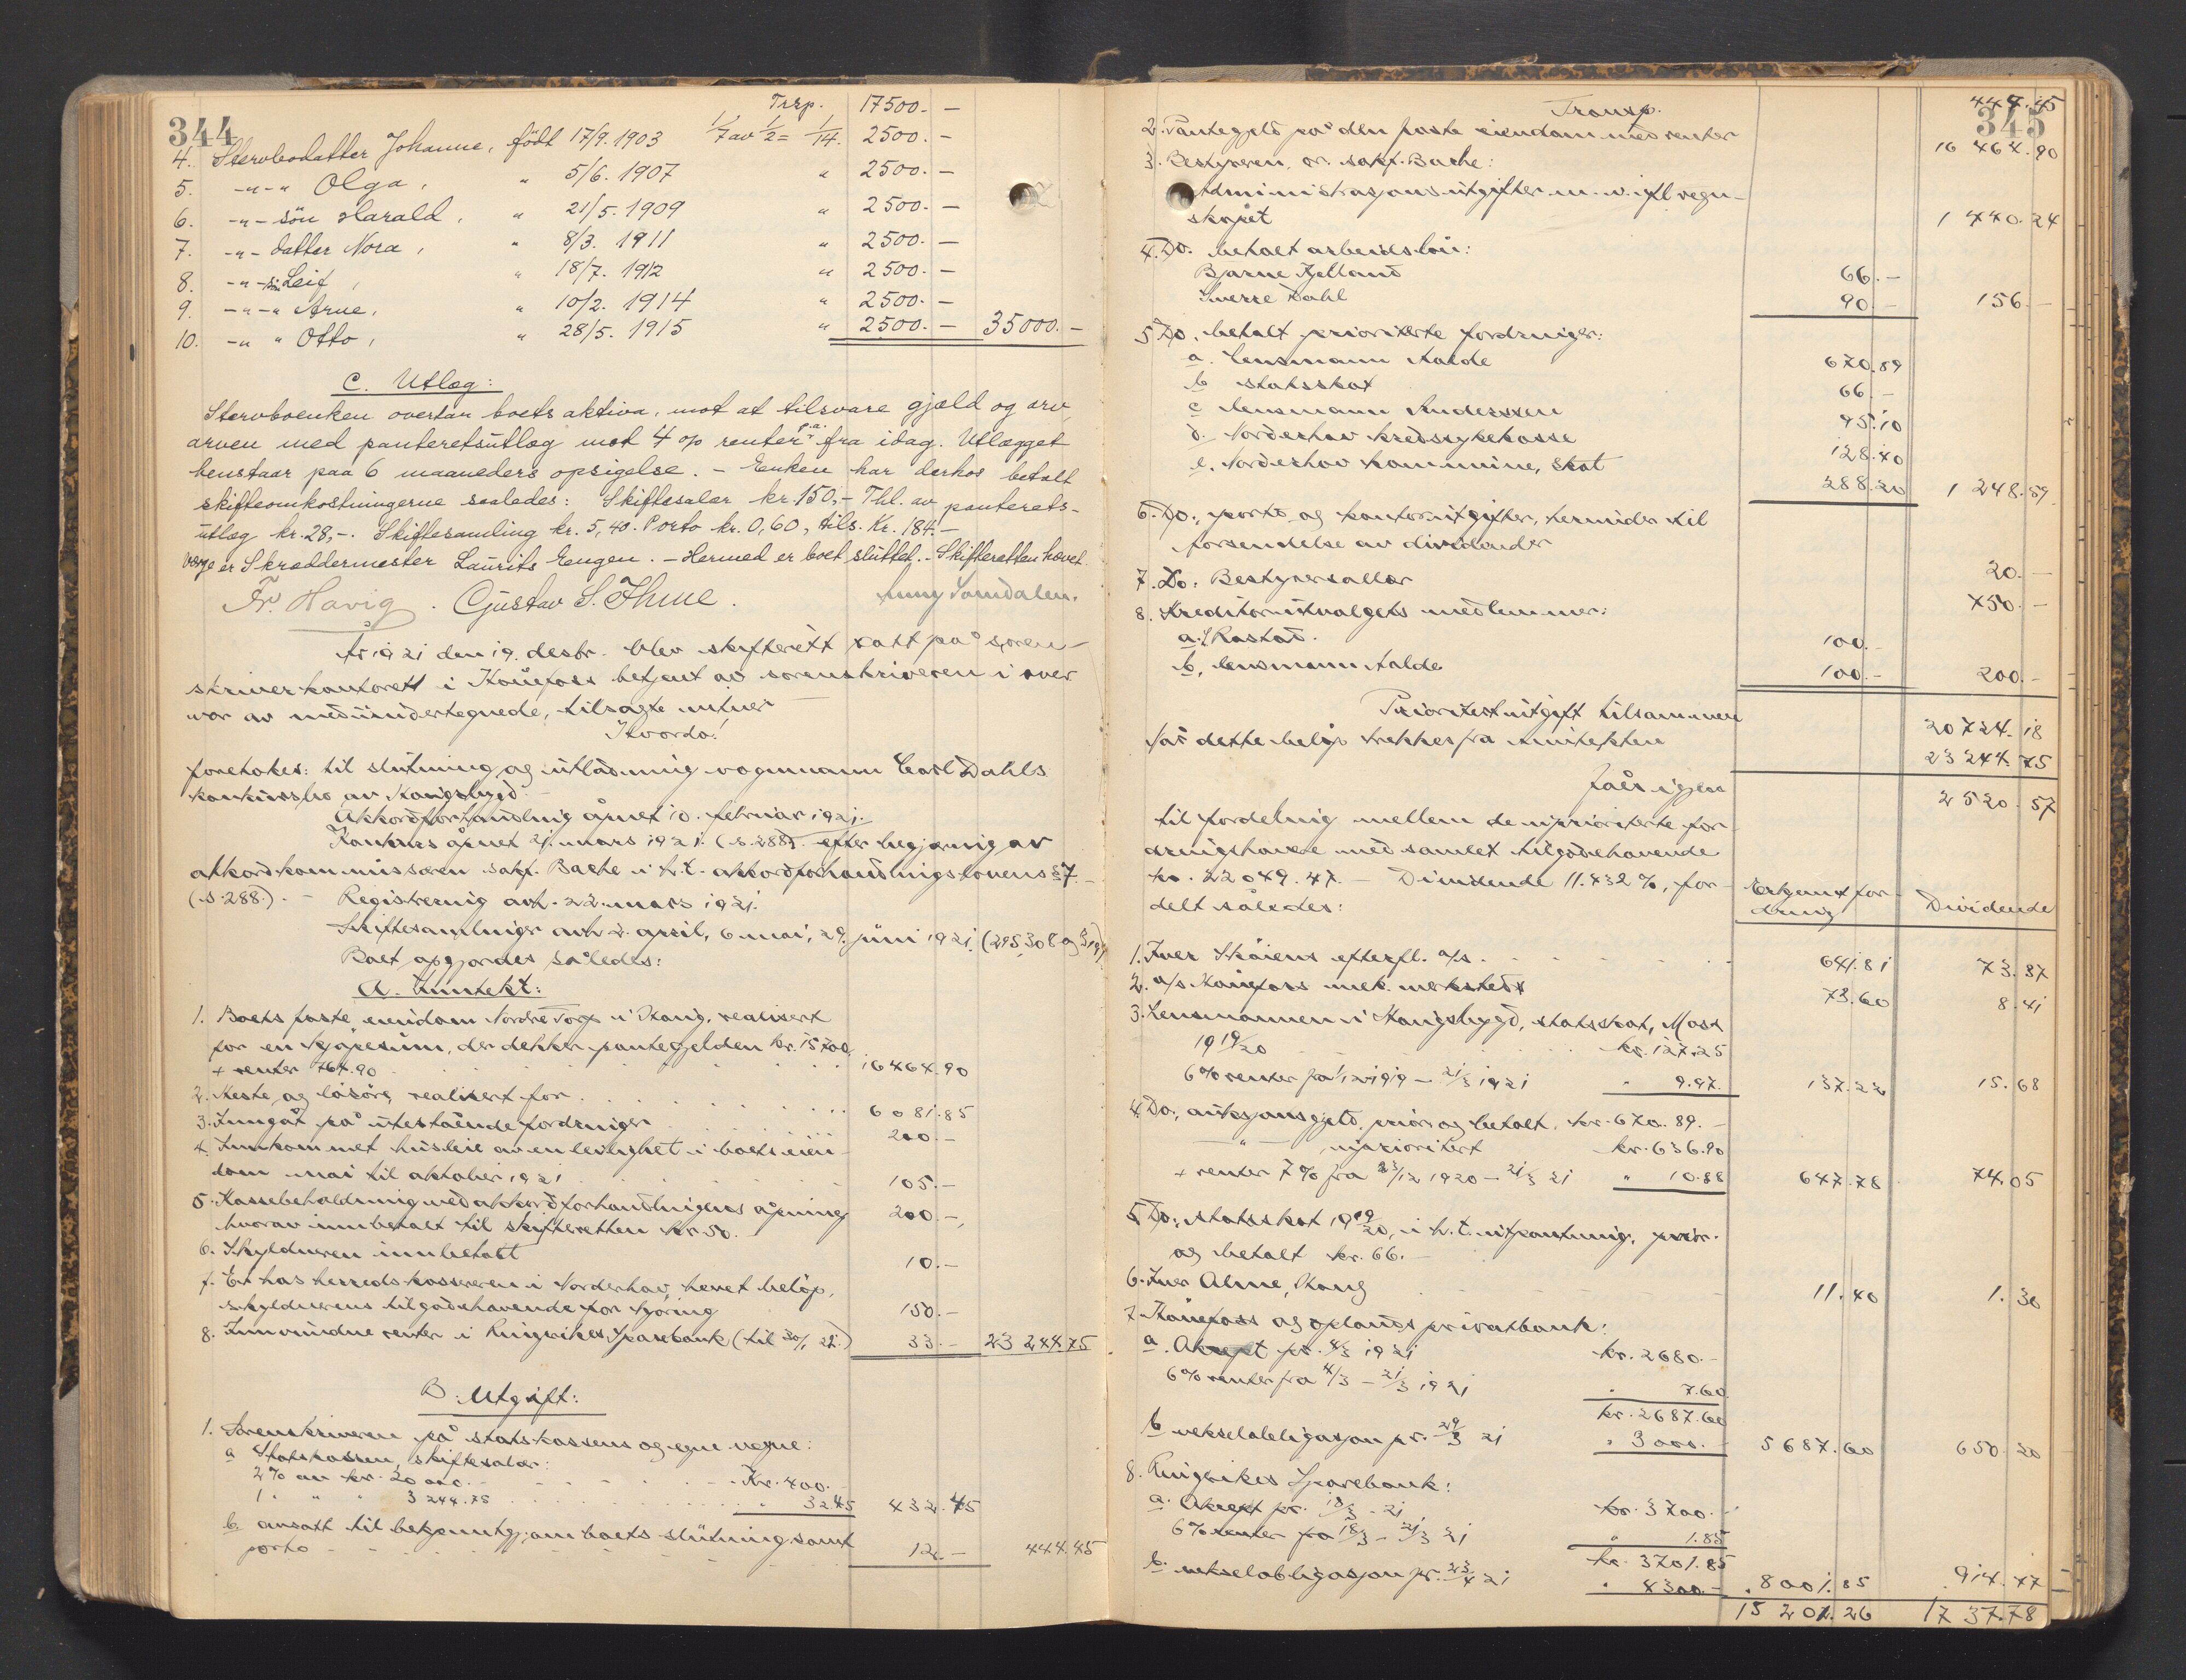 344
Trsp. 17500. —
4. Stervbodatter Johanne, født 17/9. 1903 1/7 av 1/2 = 1/14. 2500. —
5. -"-" Olga, " 5/6. 1907 " 2500. —
6. -"- sön Harald, " 21/5. 1909 " 2500. —
7. -"- datter Nora, " 8/3. 1911 " 2500. —
8. -"- sön Leif, " 18/7. 1912 " 2500. —
9. -"-" Arne, " 10/2. 1914 " 2500. —
10. -" " Otto, " 28/5. 1915 " 2500. — 35000. —
C. Utlæg:
Stervboenken overtar boets aktiva, mot at tilsvare gjæld og arv,
arven med panteretsutlæg mot 4 op renter p.a. fra idag. Utlægget
henstaar paa 6 maaneders opsigelse. – Enken har derhos betalt
skifteomkostningerne saaledes: Skiftesalær kr. 150,- Thl. av panterets-
utlæg kr. 28,-. Skiftesamling kr. 5,40. Porto kr. 0,60, tils. Kr. 184.-
Verge er Skræddermester Laurits Engen. – Hermed er boet sluttet. – Skifteretten hævet.
Fr. Havig. Gustav S. Thue. Somdalen.
År 1921 den 19. desbr. blev skifterett satt på soren-
skriverkontoret i Hönefoss betjent av sorenskriveren i over
vær av medundertegnede, tilsagte vitner
Hvorda!
foretokes: til slutning og utlodning vognmann Carl Dahls
konkursbo av Haugsbygd.
Akkordforhandling åpnet 10. februar 1921.
Konkurs åpnet 21. mars 1921. (s. 288). efter begjæring av
akkordkommissæren sakf. Bache i h.t. akkordforhandlingslovens § 7.
(s. 288). – Registrering avh. 22. mars 1921.
Skiftesamlinger avh 2. april, 6. mai, 29. juni 1921. (295 308 og 319)
Boet opgjordes således:
A. Inntekt:
1. Boets faste eiendom Nordre Torp i Haug, realisert
for en kjøpesum, der dekker pantegjelden kr. 15700,
+ renter 764.90 16464.90
2. Heste og løsøre, realisert for 6081.85
3. Inngåt på utestående fordringer 200. —
4. Innkommet husleie av en leilighet i boets eien-
dom mai til oktober 1921 105. —
5. Kassebeholdning ved akkordforhandlingens åpning 200. —
hvorav innbetalt til skifteretten kr. 50.
6. Skyldneren innbetalt 10. —
7. Et hos herredskassereren i Norderhov hevet beløp,
skyldnerens tilgodehavende for kjøring 150. —
8. Innvundne renter i Ringerikes Sparebank (til 30/1 22.) 33. — 23244.75
B. Utgift:
1. Sorenskriveren på statskassens og egne vegne:
a Statskassen, skiftesalær:
2 % av kr. 20000. – Kr. 400. –
1 " " " 3244.75 " 32.45 432.45
b ansatt til bekjentgj. om boets slutning samt
porto 12. — 444.45
345
Transp. 444.45
2. Pantegjeld på den faste eiendom med renter 16464.90
3. Bestyreren, or. sakf. Bache:
Administrasjonsutgifter m.v. ifl regn-
skapet 1440.24
4. Do. betalt arbeidsløn:
Bjarne Hjelland 66. —
Sverre Dahl 90. — 156. —
5. Do. betalt prioriterte fordringer:
a. Lensmann Aalde 670.89
b statsskat 66. —
c lensmann Anderssen 95.10
d. Norderhov kredssykekasse 128.40
e. Norderhov kommune, skat 288.20 1248.59
6. Do., porto og kontorutgifter, herunder til
forsendelse av dividender 20. —
7. Do. Bestyrersallær 750. —
8. Kreditorutvalgets medlemmer:
a. Rastad. 100. —
b. lensmann Aalde 100. — 200. —
Prioritetsutgift tilsammen 20724.18
Når dette beløp trekkes fra inntekten 23244.75
fåes igjen 2520.57
til fordeling mellem de uprioriterte for-
dringshavere med samlet tilgodehavende
kr. 22049.47. – Dividende 11.432 %, for-
delt således:
Erkjent for-
dring Dividende
1. Iver Skåiens efterfl. a/s. 641.81 73.37
2. a/s. Hønefoss mek. verksted 73.60 8.41
3. Lensmannen i Haugsbygd, statsskat,
1919/20 kr. 127.25
6 % renter fra 1/12 1919 – 21/3 1921 " 9.97. 137.22 15.68
4. Do., auksjonsgjeld, prior. og betalt. kr. 670.89. –
" uprioritert kr. 636.90
+ renter 7 % fra 23/12 1920 – 21/3 21 " 10.88 647.78 74.05
5. Do., statsskat 1919/20, i h.t. utpantning, prior.
og betalt kr. 66. –
6. Iver Alme, Haug 11.40 1.30
7. Hönefoss og oplands privatbank:
a. Aksept pr. 4/3 1921 kr. 2680. –
6 % renter fra 4/3 – 21/3 1921 " 7.60
kr. 2687.60
b vekselobligasjon pr. 29/3 21 " 3000. – 5687.60 650.20
8. Ringerikes Sparebank:
a. Aksept pr. 18/3 – 21 kr. 3700. –
6 % renter fra 18/3 – 21/3 21 " 1.85
kr. 3701.85
b. vekselobligasjon pr. 23/4 21 " 4300. – 8001.85 914.77
15201.26 1737.78